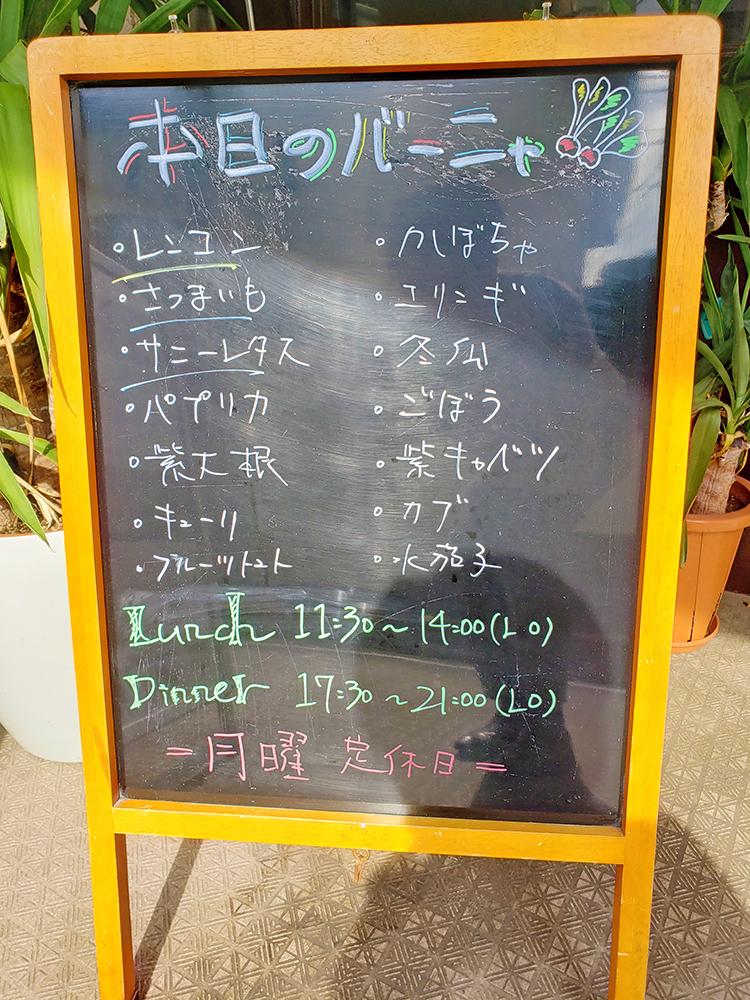 本日のバーニャ
・レンコン
・さつまいも
・サニーレタス
・パプリカ
・紫大根
・キューリ
・フルーツトマト
・かぼちゃ
・エリンギ
・冬瓜
・ごぼう
・紫キャベツ
・カブ
・水茄子
Lunch 11:30～14:00(LO)
Dinner 17:30～21:00(LO)
=月曜 定休日=